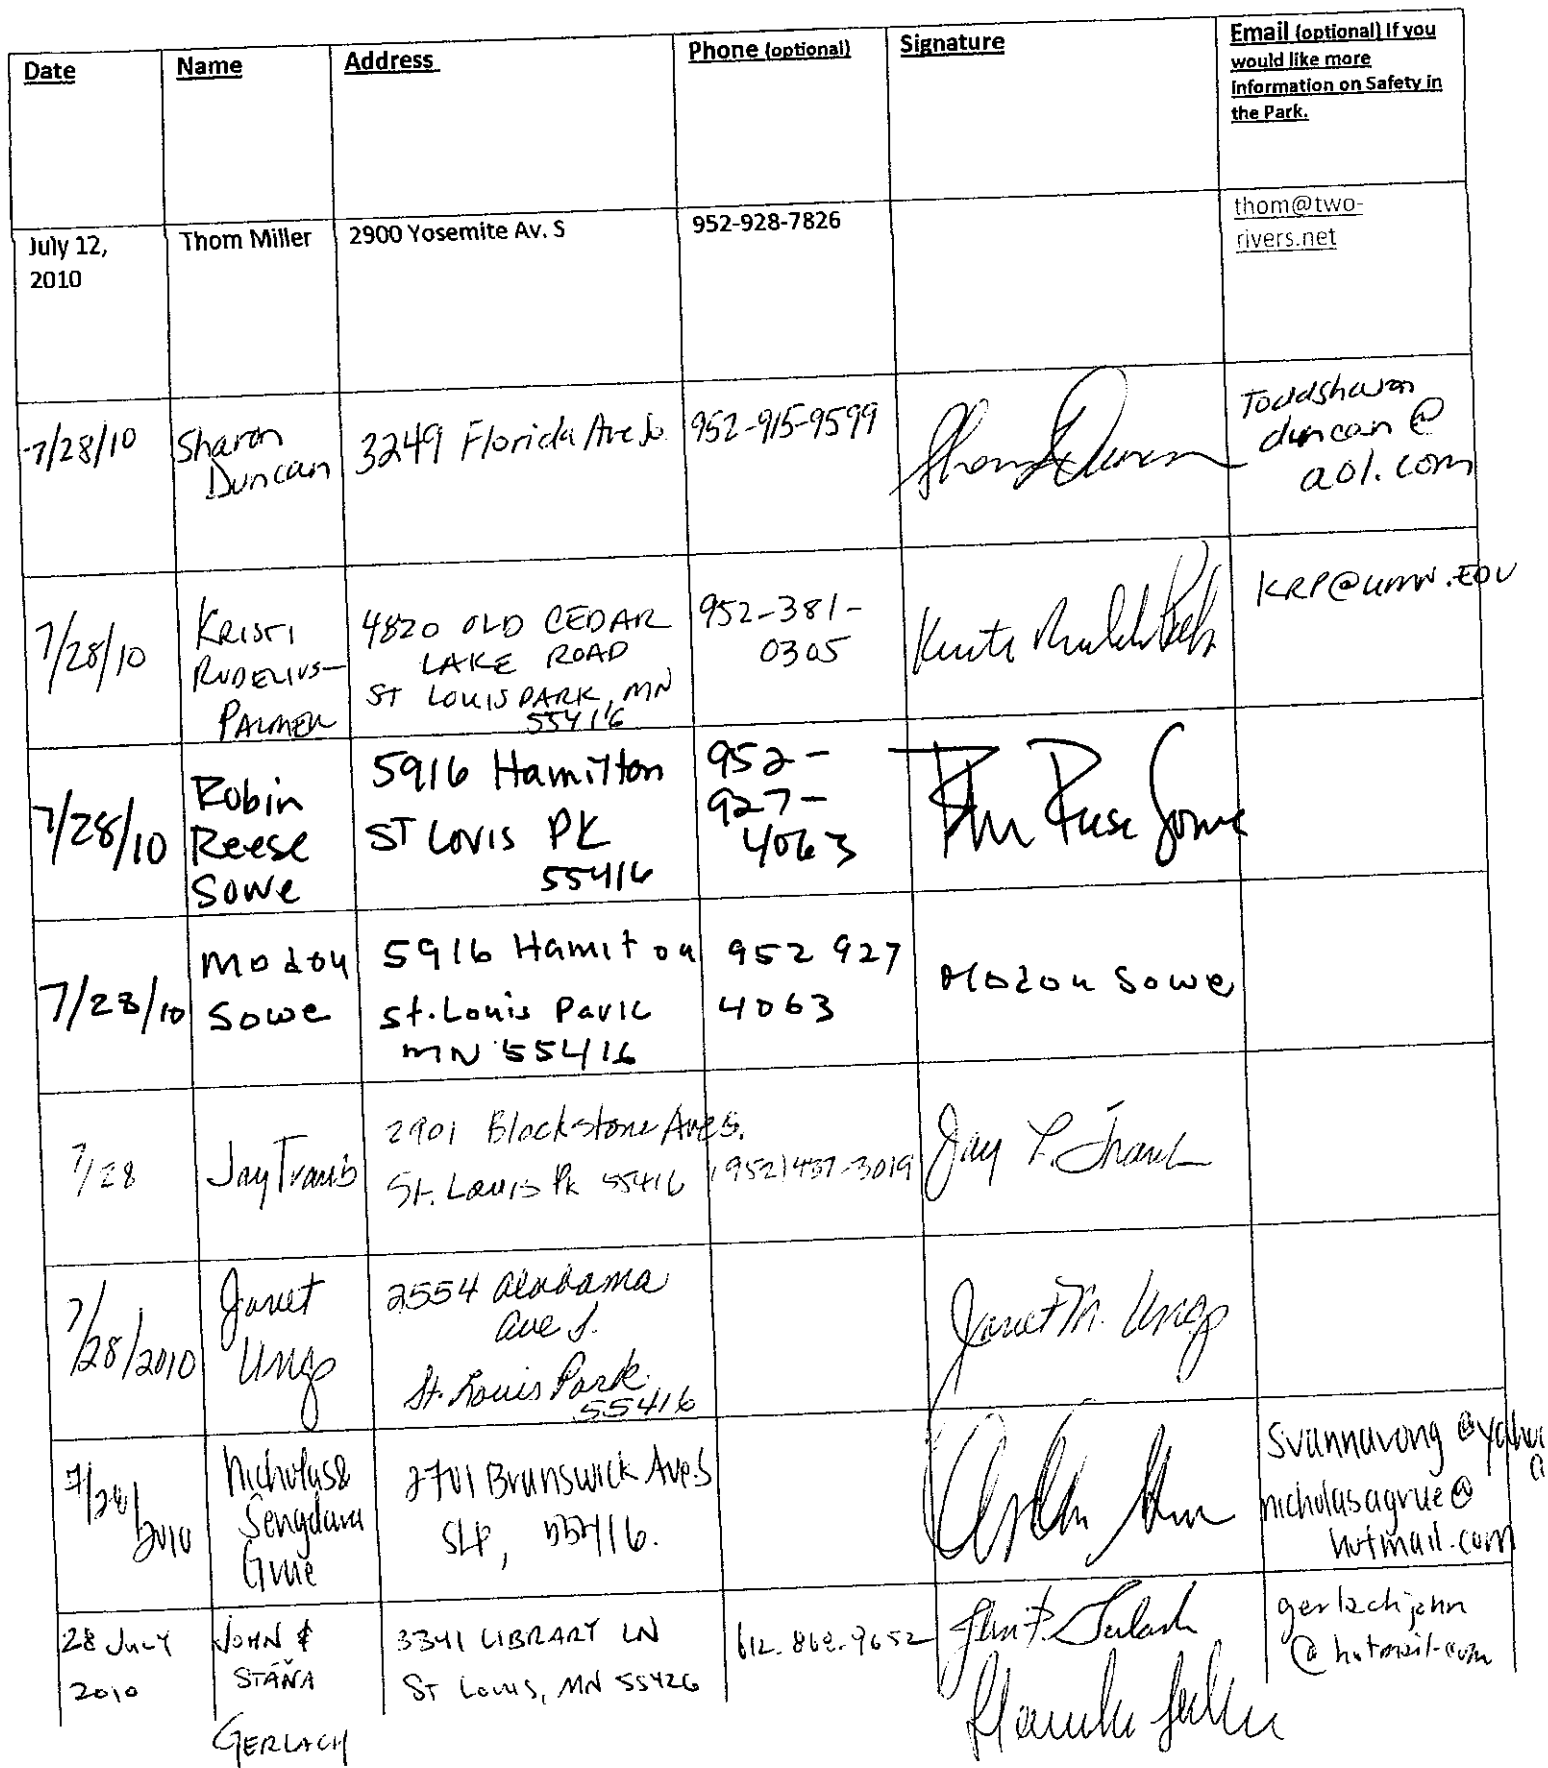 Date
Name
Address
Phone (optional)
Signature
Email (optional) If you
would like more
information on Safety in
the Park.
July 12,
2010
Thom Miller
2900 Yosemite Av. S
952-928-7826
thom@two-
rivers.net
7/28/10
Sharon
Duncan
3249 Florida Ave So.
952-915-9599
Toddsharon
duncan@
aol.com
7/28/10
KRISTI
RUDELIUS-
PALMER
4820 OLD CEDAR
LAKE ROAD
ST LOUIS PARK, MN
55416
952-381-
0305
KRP@UMN.EDU
7/28/10
Robin
Reese
Sowe
5916 Hamilton
ST LOUIS PK
55416
952-
927-
4063
7/28/10
Modou
Sowe
5916 Hamiton
St. Louis Park
MN 55416
952 927
4063
Modou Sowe
7/28
Jay Travis
2901 Blackstone Ave S.
St. Louis Pk 55416
(952)
Jay
7/
/28/2010
Janet
Ungs
2554 Alabama
Ave S.
St. Louis Park
55416
Janet M. Ungs
7/28/
2010
Nicholas &
Sengdara
Grue
2701 Brunswick Ave S
SLP, 55416.
svannavong@yahoo
nicholasagrue@
hotmail.com
28 JULY
2010
JOHN &
STÁŇA
GERLACH
3341 LIBRARY LN
ST LOUIS, MN 55426
612.868.9652
gerlachjohn
@hotmail.com